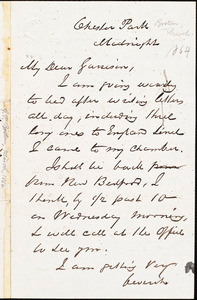 Chester Park
Midnight
1864
My Dear Garrison,
I am going
to bed after writing letters
all day, including three
long ones to England since
I came to my chamber.
I shall be back
from New Bedford, I
think, by 1/2 past 10
on Wednesday morning,
& will call at the Office
to see you.
I am getting very